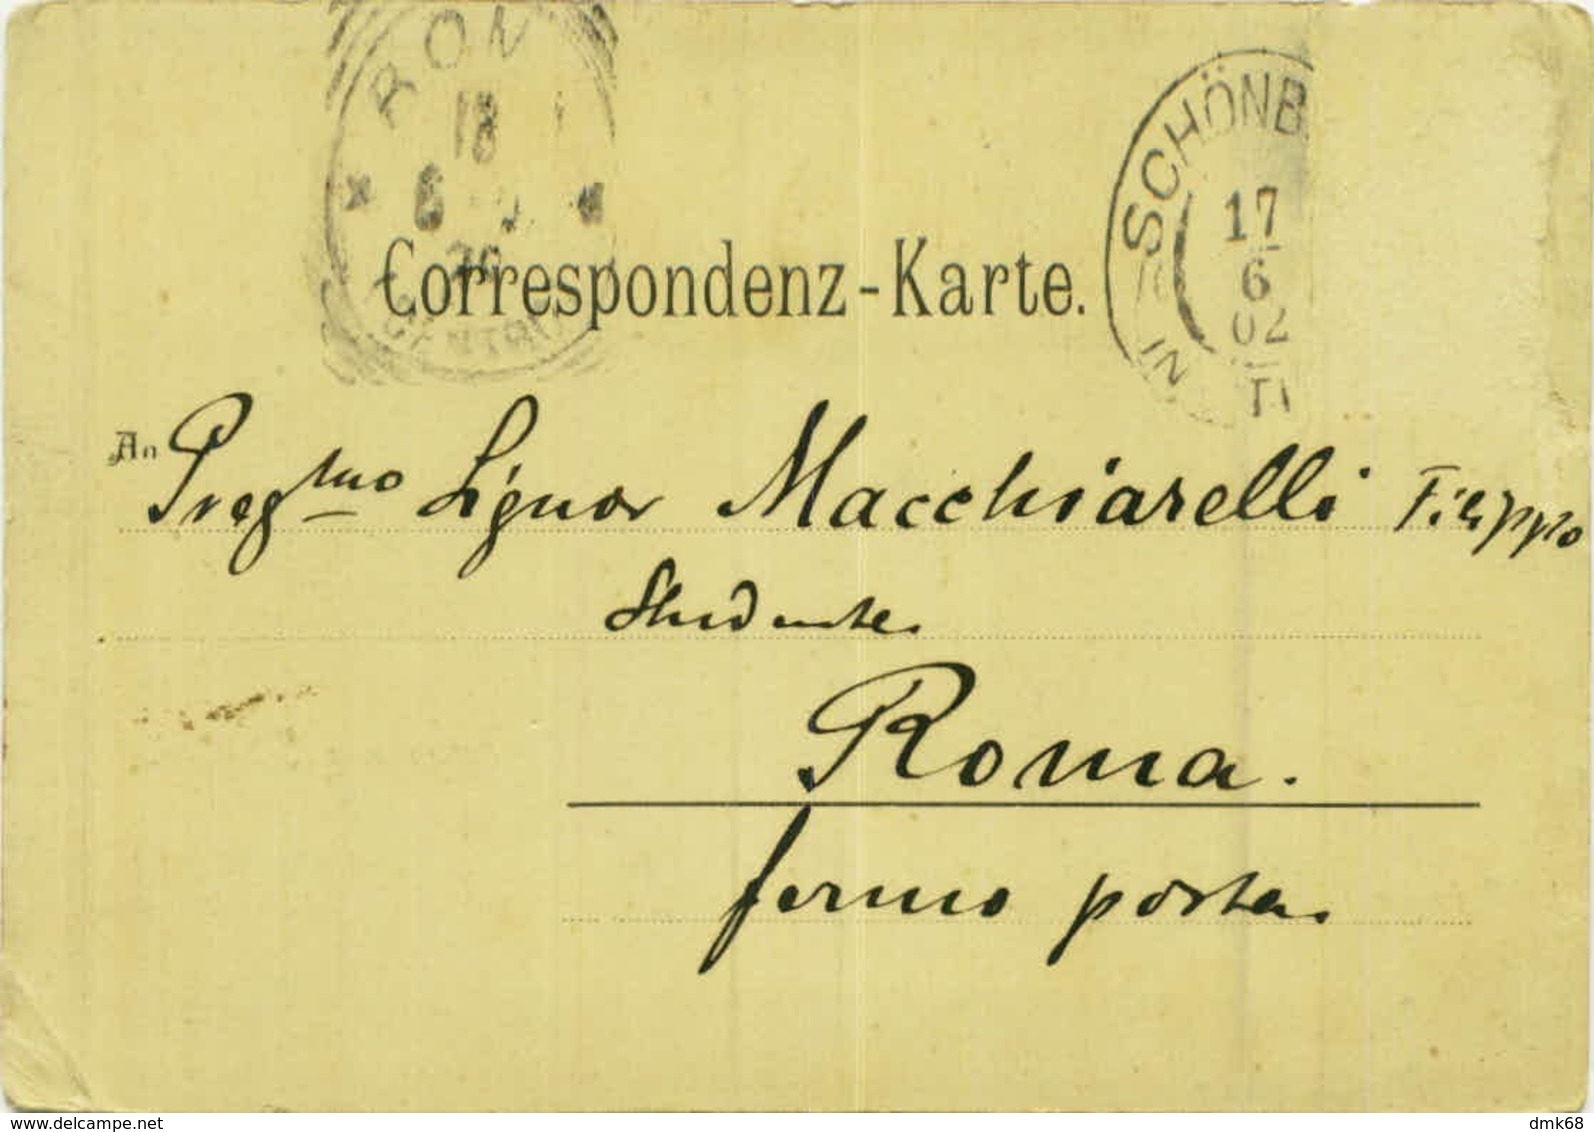 ROM
18
6
CENTRO
SCHÖNB
17
6
02
IN TI
Correspondenz-Karte.
An Preg^mo Signor Macchiarelli Filippo
Studente.
Roma.
fermo posta.
www.delcampe.net
dmk68